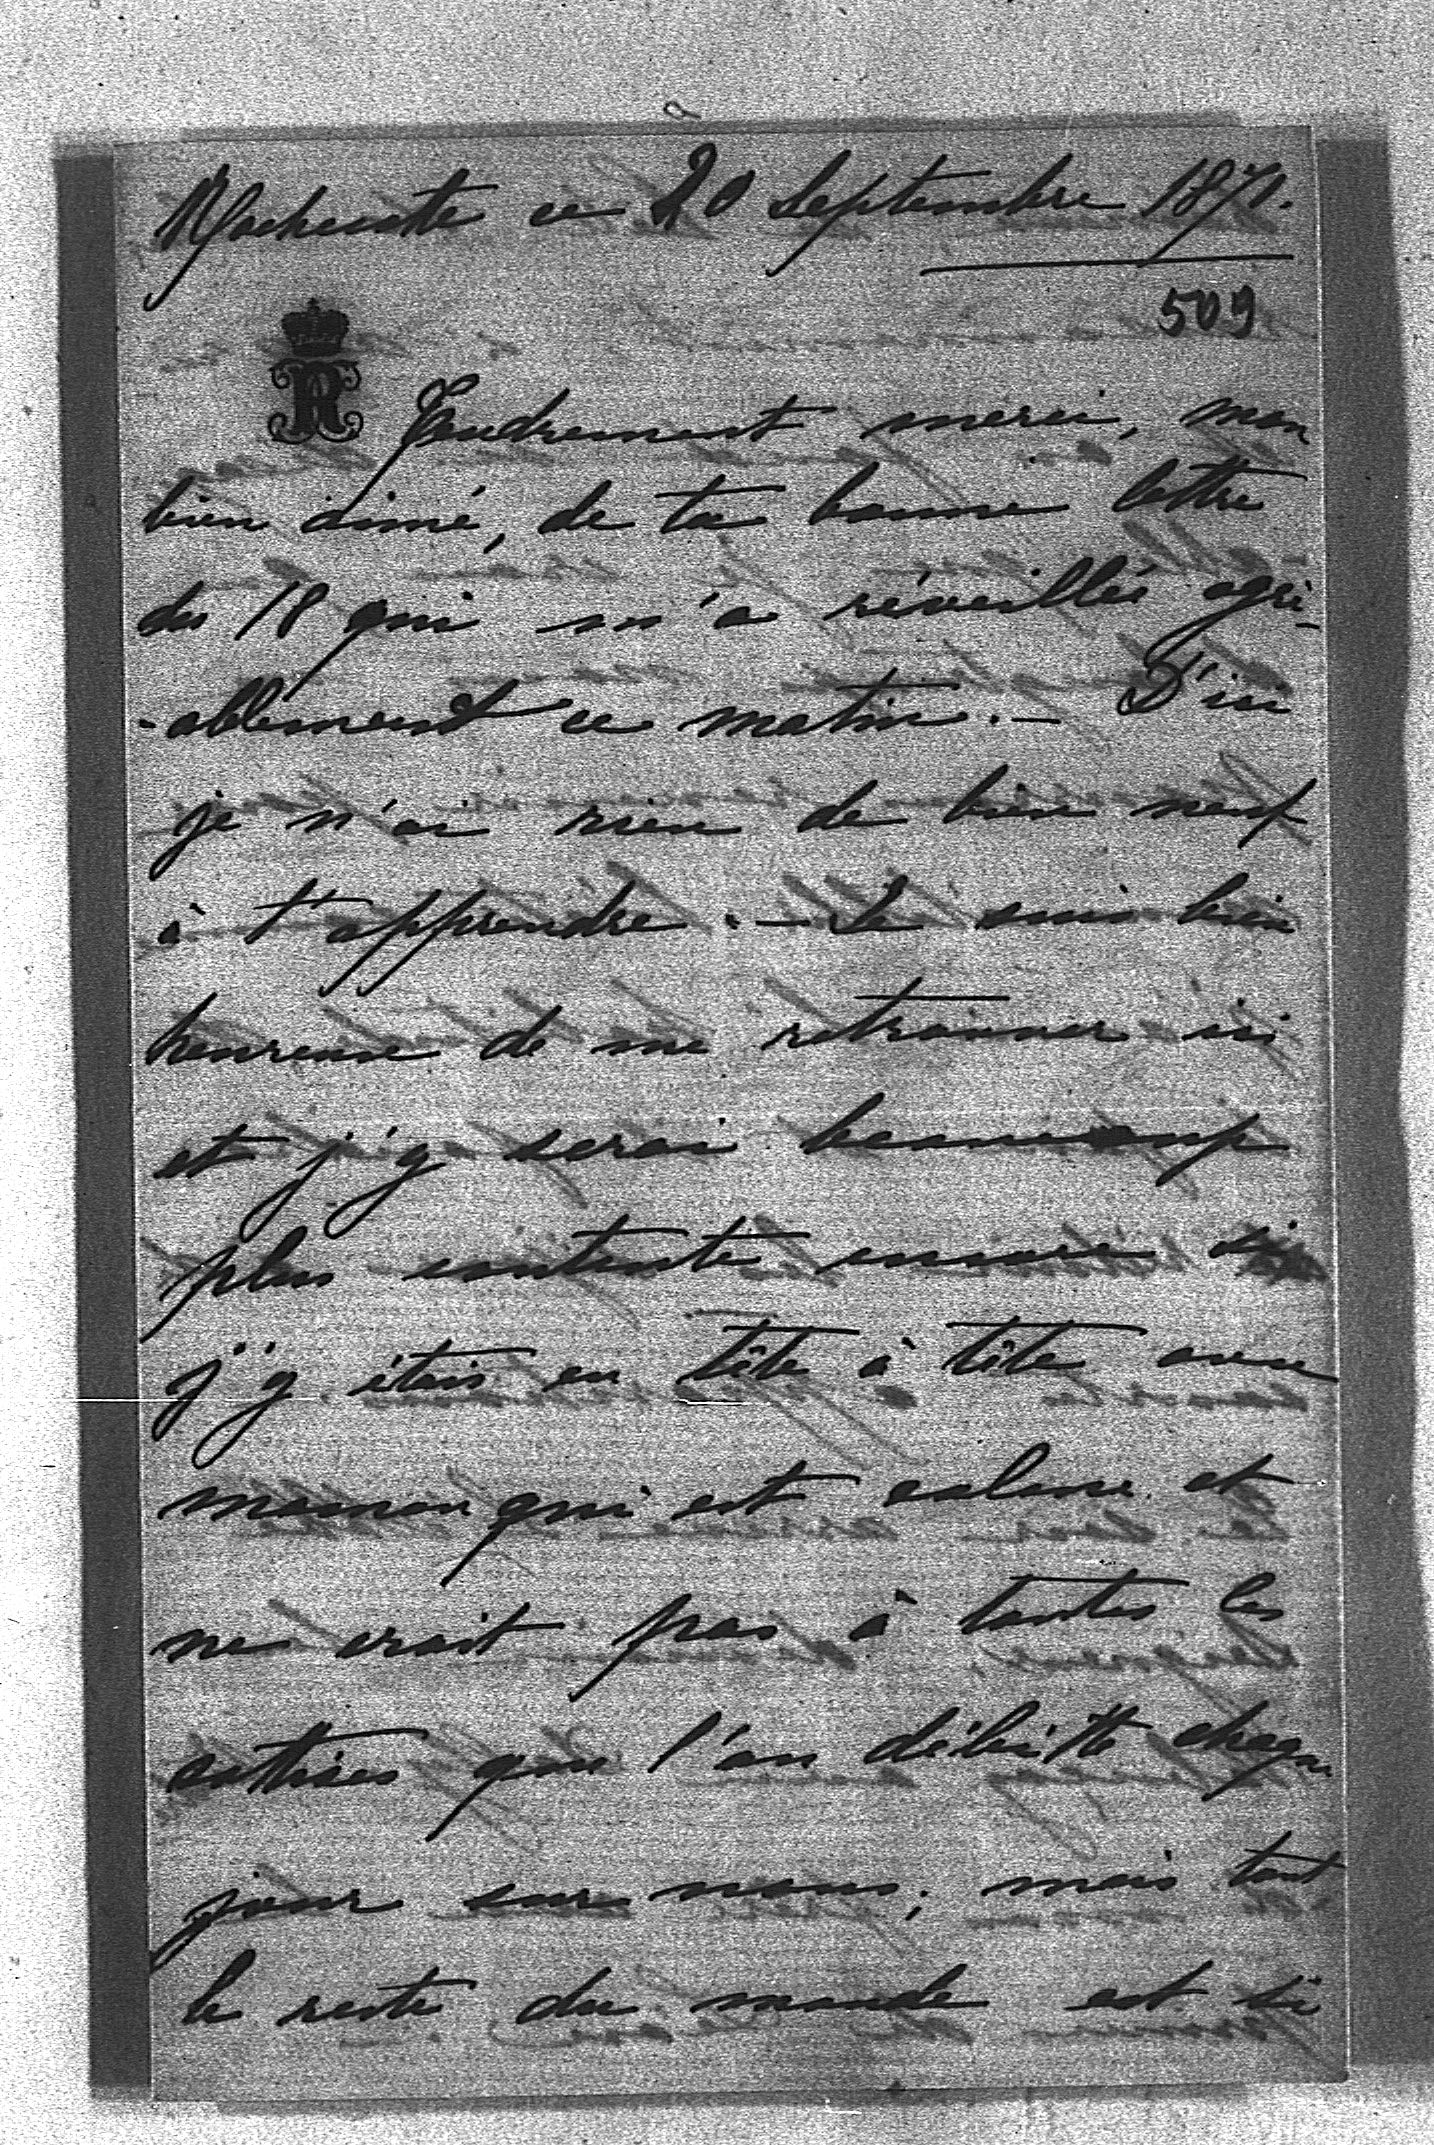 Rochecotte ce 20 Septembre 1871.
509
R
Tendrement merci, mon
bien aimé, de ta bonne lettre
du 18 qui m'a réveillée agré-
-ablement ce matin. - D'ici
je n'ai rien de bien neuf
à t'apprendre. - Je suis bien
heureuse de me retrouver ici
et j'y serai beaucoup
plus contente encore si
j'y étais en tête à tête avec
maman qui est calme et
ne croit pas à toutes les
sottises que l'on débitte chaque
jour sur nous, mais tout
le reste du monde est si